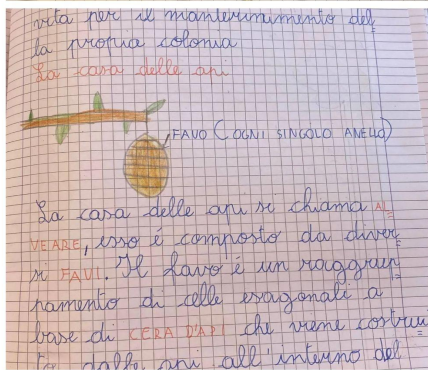 vita per il mantenimimento del
la propria colonia
La casa delle api
FAVO (OGNI SINGOLO ANELLO)
La casa delle api si chiama AL
VEARE, esso é composto da diver=
si FAVI. Il favo é un raggrup=
pamento di celle esagonali a
base di CERA D'API che viene costrui
to dalle api all'interno del